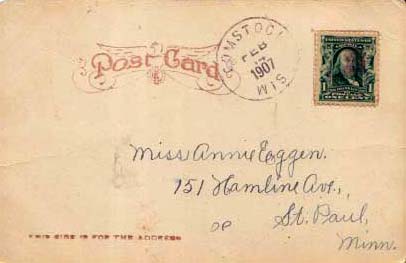 Post Card
COMSTOCK
FEB
1907
WIS
UNITED STATES
1
ONE CENT
Miss Annie Eggen.
151 Hamline Ave.,
St. Paul,
Minn.
THIS SIDE IS FOR THE ADDRESS